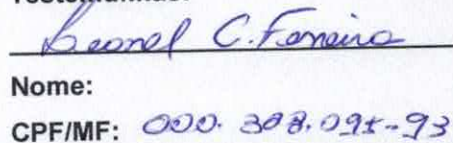 Leonel C. Ferreira
Nome:
CPF/MF: 000. 308.095-93